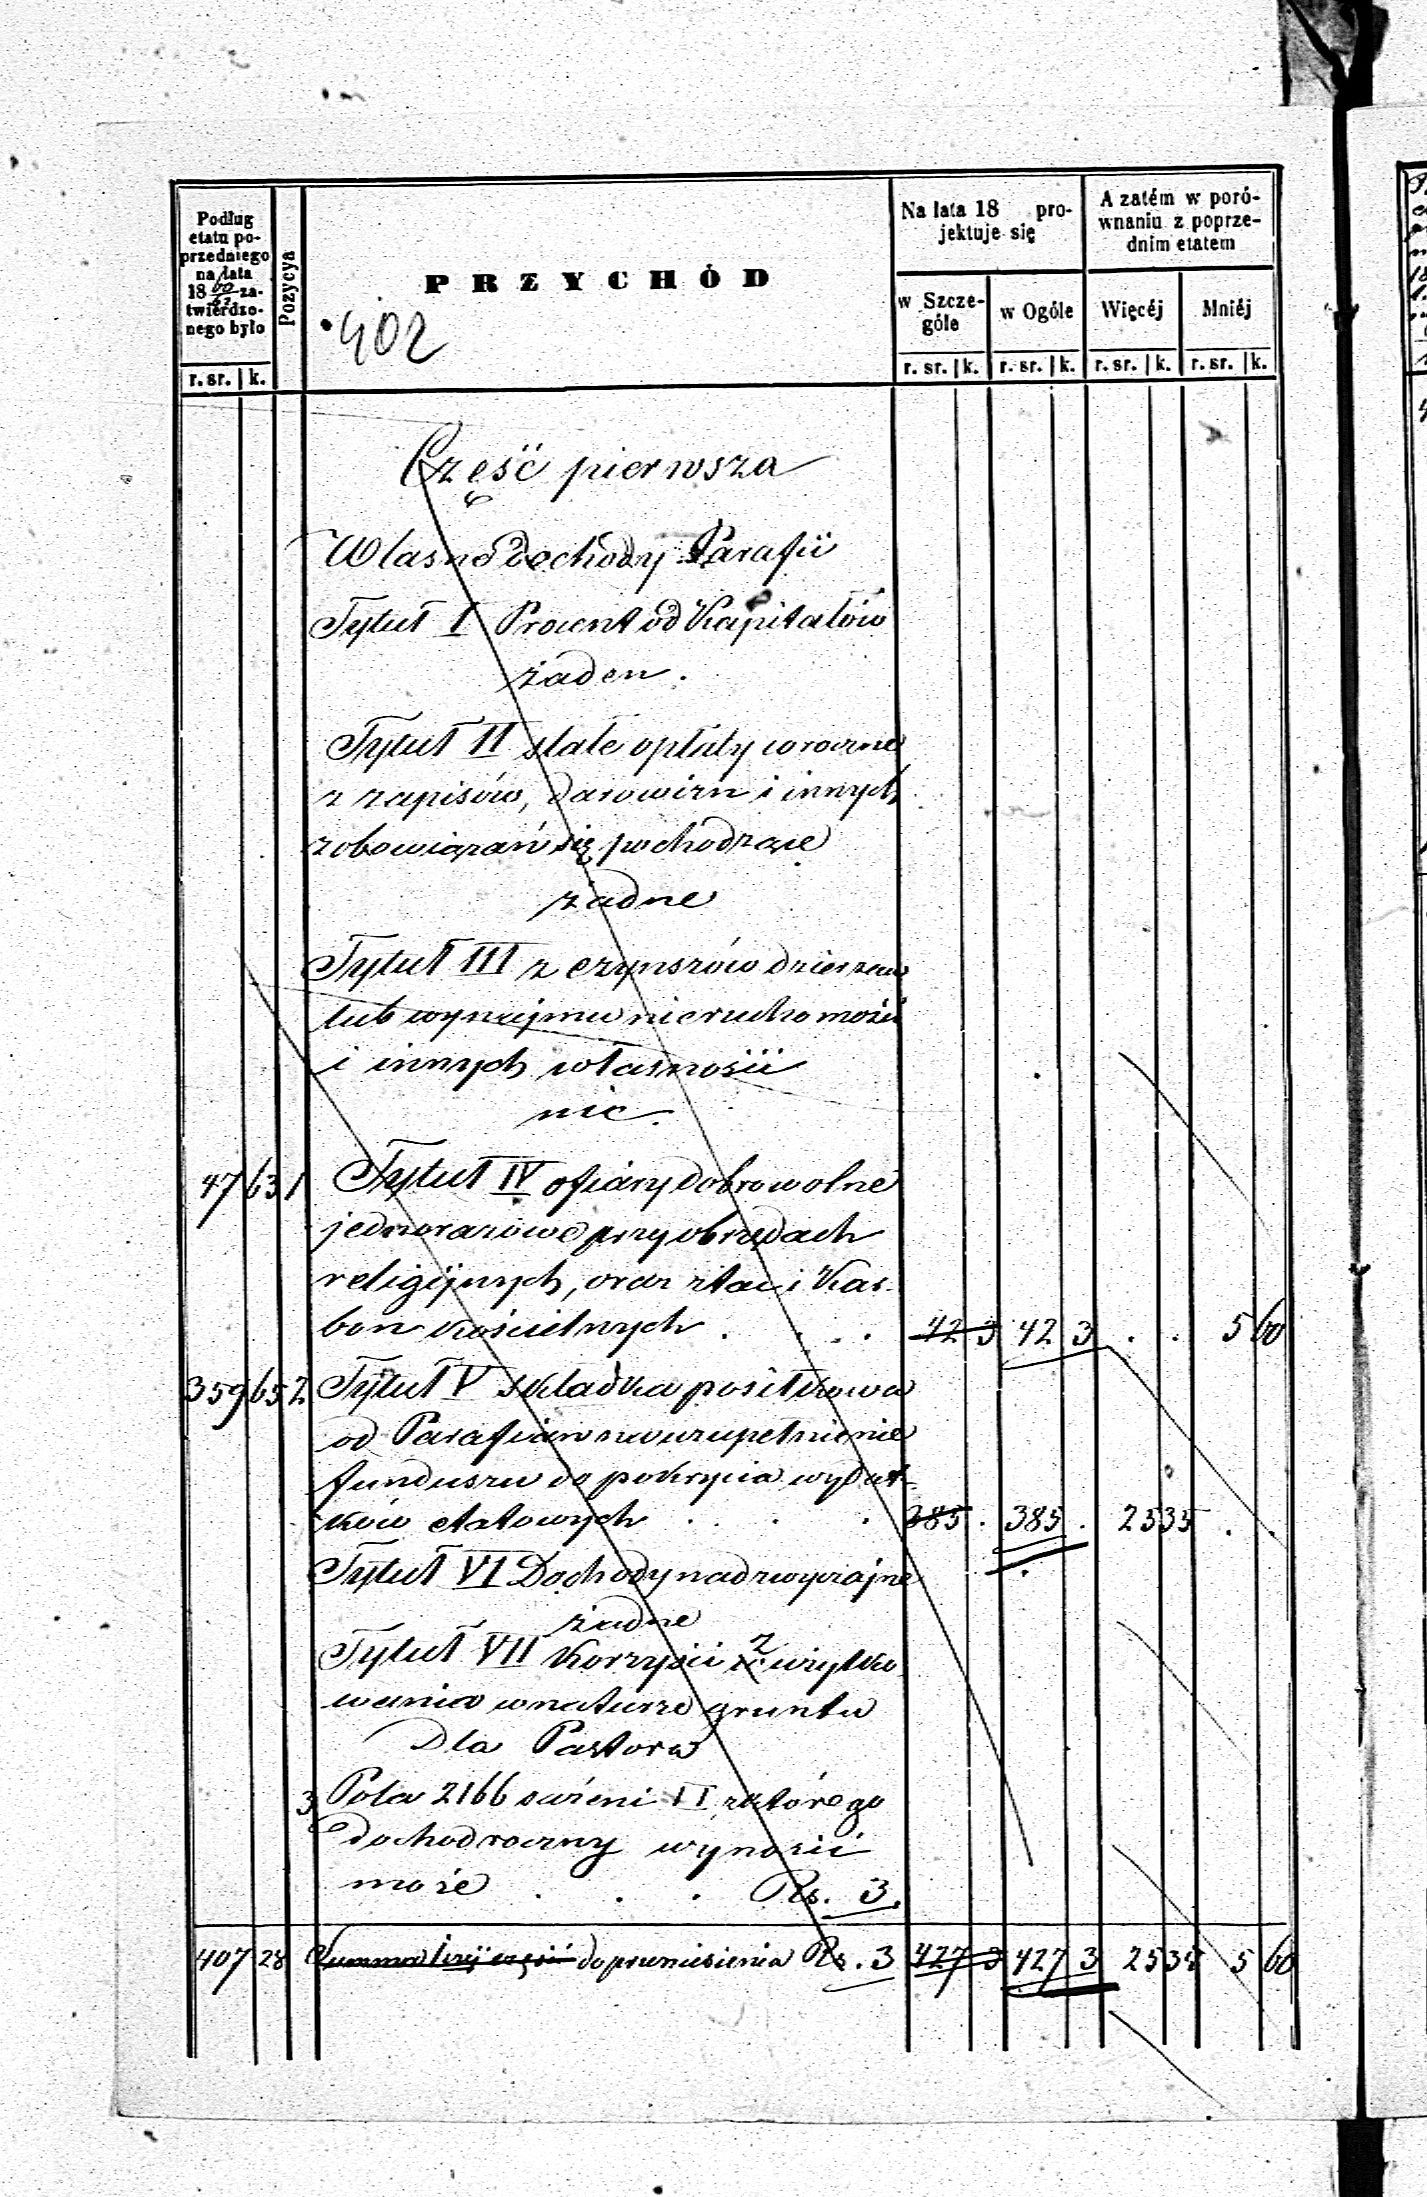 Podług
etatu po-
przedniego
na lata
18 60/62 za-
twierdzo-
nego było
r. sr. | k.
Pozycya
PRZYCHÓD
402
Na lata 18 pro-
jektuje się
w Szcze-
góle
w Ogóle
r. sr. | k. r. sr. | k.
A zatém w poró-
wnaniu z poprze-
dnim etatem
Więcéj Mniéj
r. sr. | k. r. sr. | k.
Część pierwsza
Własne dochody Parafii
Tytuł I Procent od Kapitałów
żaden.
Tytuł II stałe opłaty wroczne
z zapisów, darowizn i innych
zobowiązań się pochodzące
żadne
Tytuł III z czynszów dzierżaw
lub wynajmu nieruchomości
i innych własności
nic.
47 63 1 Tytuł IV ofiary dobrowolne
jednorazowe przy obrzędach
religijnych, oraz z tac i Kar-
bon kościelnych . . . 42 3 42 3 . . 5 60
359 65 2 Tytuł V składka posiłkowa
od Parafian na uzupełnienie
funduszu do pokrycia wydat-
ków etatowych . . . 385 . 385 . 25 35 . .
Tytuł VI Dochody nadzwyczajne
żadne
Tytuł VII Korzyści z użytko-
wania w naturze gruntu
Dla Pastora
3 Pola 2166 sążeni □ z którego
dochód roczny wynosić
może . . . Rs. 3.
407 28 Summa 1széj części do przeniesienia Rs. 3 427 3 427 3 25 35 5 60